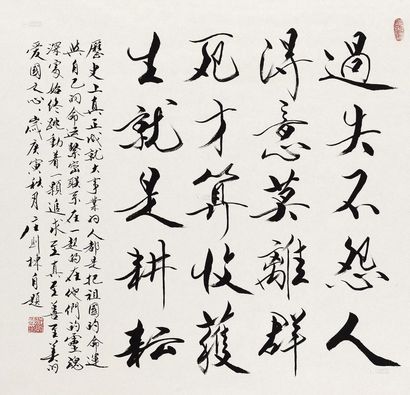 過失不怨人
得意莫離群
死才算收獲
生就是耕耘
歷史上真正成就大事業的人都是把祖國的命運
與自己的命運緊密聯系在一起的在他們的靈魂
深處始終跳動着一顆追求至真至善至美的
愛國之心歲庚寅秋月莊則棟自題